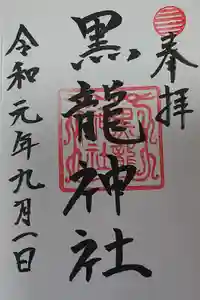 奉拝
黒龍神社
令和元年九月一日